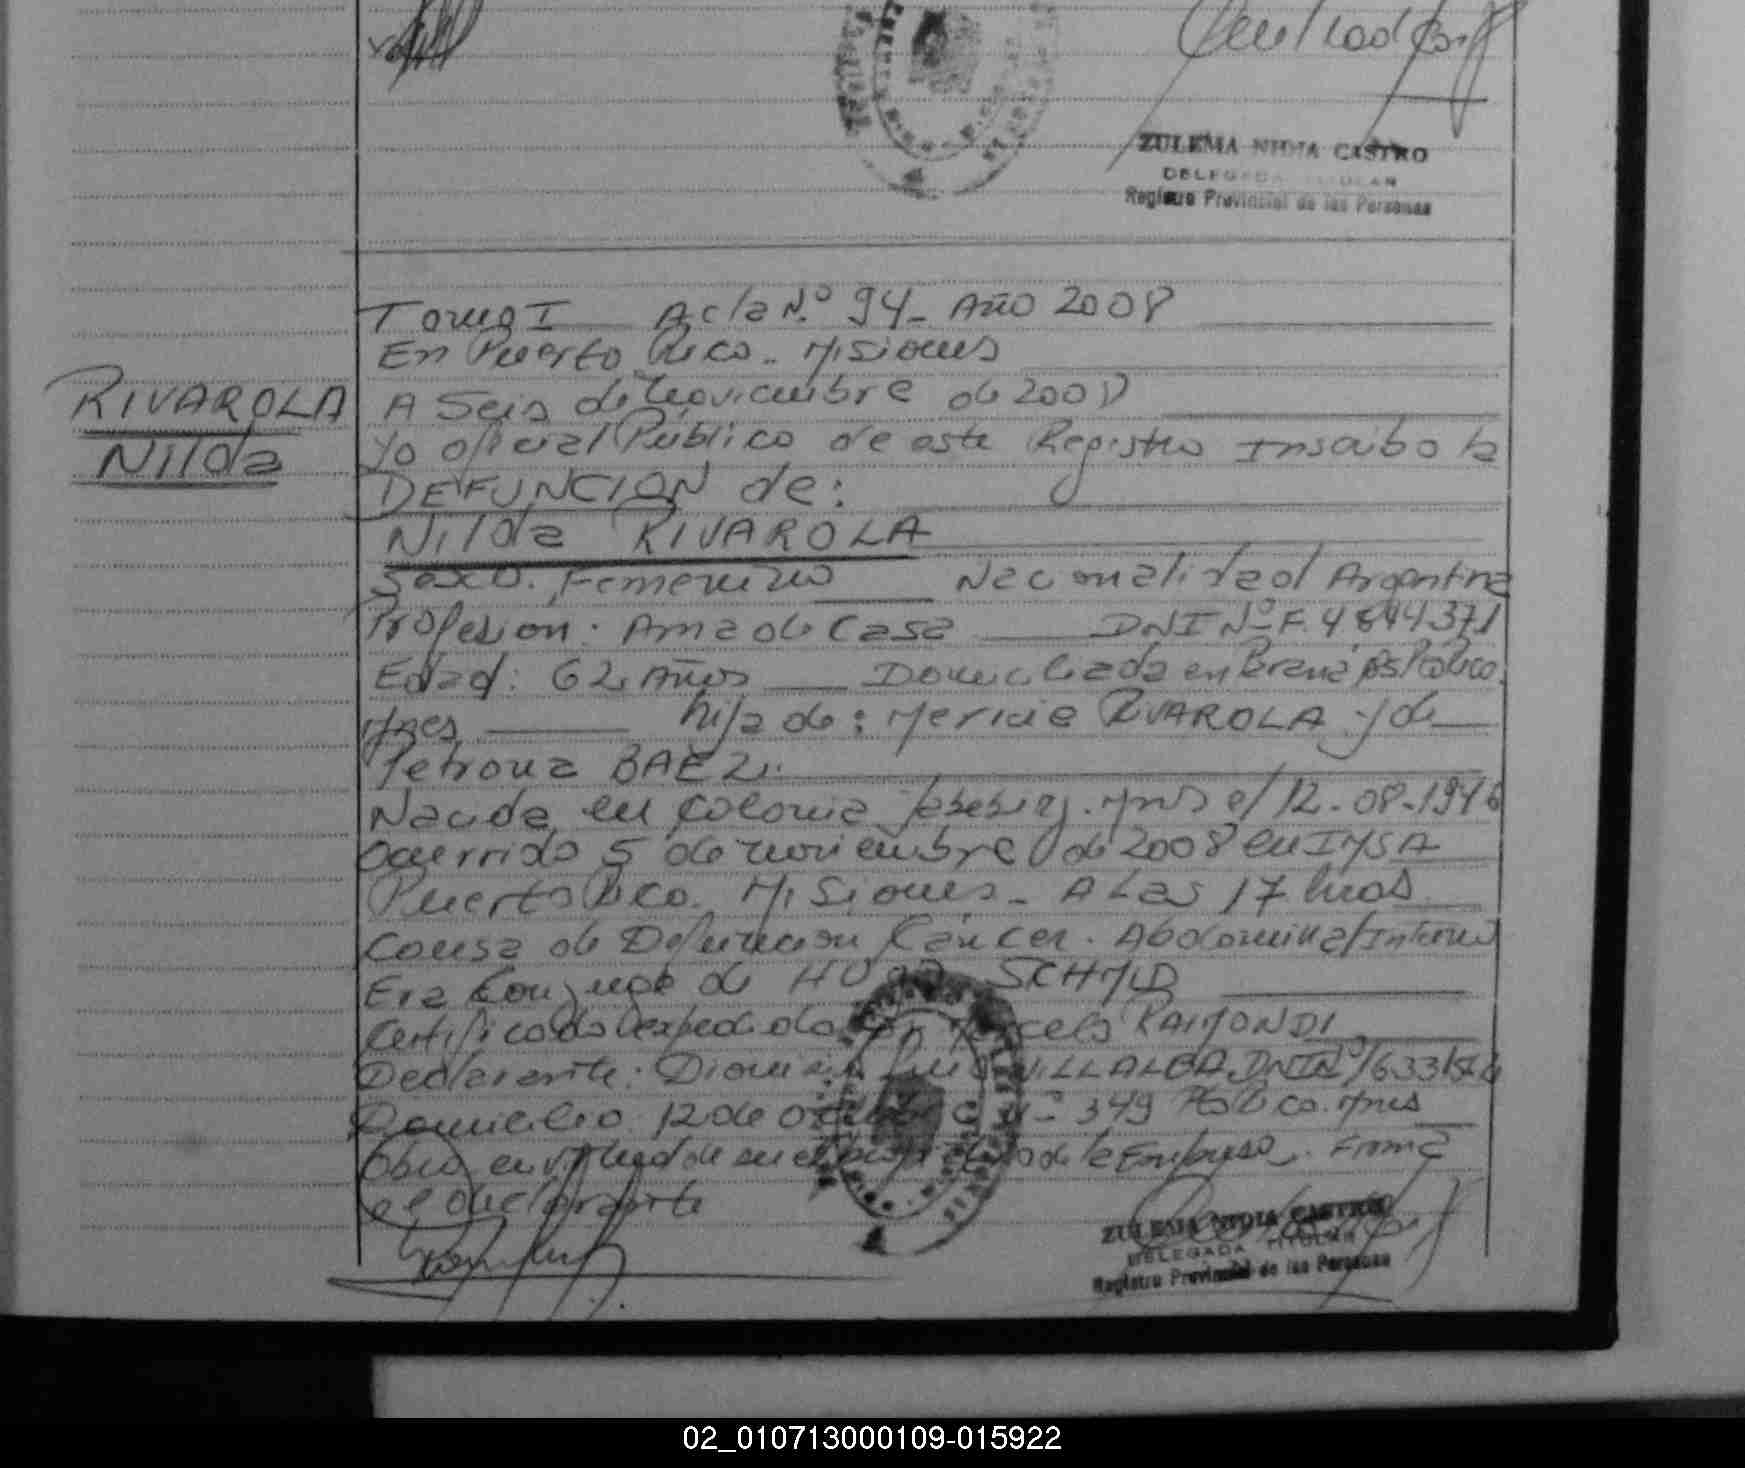 ZULEMA NIDIA CASTRO
DELEGADA TITULAR
Registro Provincial de las Personas
Tomo I Acta N.º 94- Año 2008
En Puerto Rico. Misiones
RIVAROLA
Nilda
A Seis de Noviembre de 2008
Yo oficial Público de este Registro Inscribo la
DEFUNCION de:
Nilda RIVAROLA
Sexo. Femenino Nacionalidad Argentina
Profesion: Ama de Casa DNI Nº F. 4844371
Edad: 62 Años Domiciliada en Paraná Pto Rico.
Mnes hija de: RIVAROLA y de
Petrona BAEZ.
Nacida en Colonia Mns el 12-08-1946
Ocurrido 5 de noviembre de 2008 en
Puerto Rico. Misiones- A Las 17 hras
Causa de Defunción Cáncer. Abdominal
Era Conyuge de HUGO SCHMID
Certificado expedido RAIMONDI
Declarante: VILLALBA DNI Nº
Domicilio. 12 de Octubre Nº 349 Pto Rico. Mnes
Obra en virtud de de la Empresa. Firma
el declarante
ZULEMA NIDIA CASTRO
DELEGADA TITULAR
Registro Provincial de las Personas
02_010713000109-015922